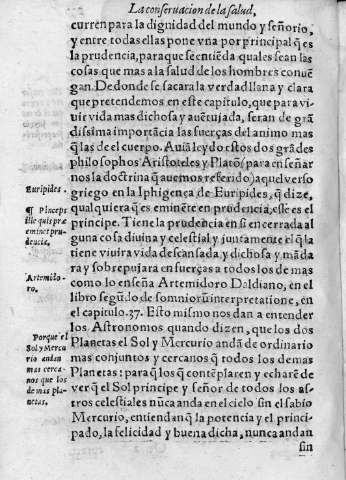 La conseruacion de la salud,
curren para la dignidad del mundo y señorio,
y entre todas ellas pone vna por principal q̃ es
la prudencia, para que se entiẽda quales sean las
cosas que mas a la salud de los hombres conuẽ
gan. De donde se sacara la verdad llana y clara
que pretendemos en este capitulo, que para vi-
uir vida mas dichosa y auẽtujada, seran de grã
dissima importãcia las fuerças del animo mas
q̃ las de el cuerpo. Auiã leydo estos dos grãdes
philosophos Aristoteles y Platõ (para enseñar
nos la doctrina q̃ auemos referido) aquel verso
Euripides.
griego en la Iphigença de Euripides, q̃ dize,
¶ Princeps
ille qui præ
eminet pru
dentia.
qualquiera q̃ es eminẽte en prudencia, esse es el
principe. Tiene la prudencia en si encerrada al
guna cosa diuina y celestial y juntamente el q̃ la
tiene viuira vida descansada y dichosa y mãda
ra y sobrepujara en fuerças a todos los de mas
Artemido-
ro.
como lo enseña Artemidoro Daldiano, en el
libro segũdo de somniorũ interpretatione, en
el capitulo. 37. Esto mismo nos dan a entender
los Astronomos quando dizen, que los dos
Porque el
Sol y Mercu
rio andan
mas cerca-
nos que los
de mas pla-
netas.
Planetas el Sol y Mercurio andã de ordinario
mas conjuntos y cercanos q̃ todos los demas
Planetas: para q̃ los q̃ contẽplaren y echarẽ de
ver q̃ el Sol principe y señor de todos los as-
tros celestiales nũca anda en el cielo sin el sabio
Mercurio, entiendan q̃ la potencia y el princi-
pado, la felicidad y buena dicha, nunca andan
sin